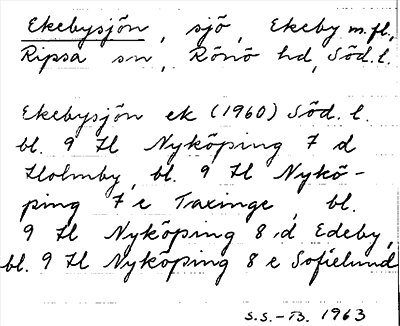 Ekebysjön, sjö, Ekeby m.fl.,
Ripsa sn, Rönö hd, Söd. l.
Ekebysjön ek (1960) Söd. l.
bl. 9 H Nyköping 7 d
Holmby, bl. 9 H Nykö-
ping 7 e Taxinge, bl.
9 H Nyköping 8 d Edeby,
bl. 9 H Nyköping 8 e Sofielund
S.S.-B. 1963